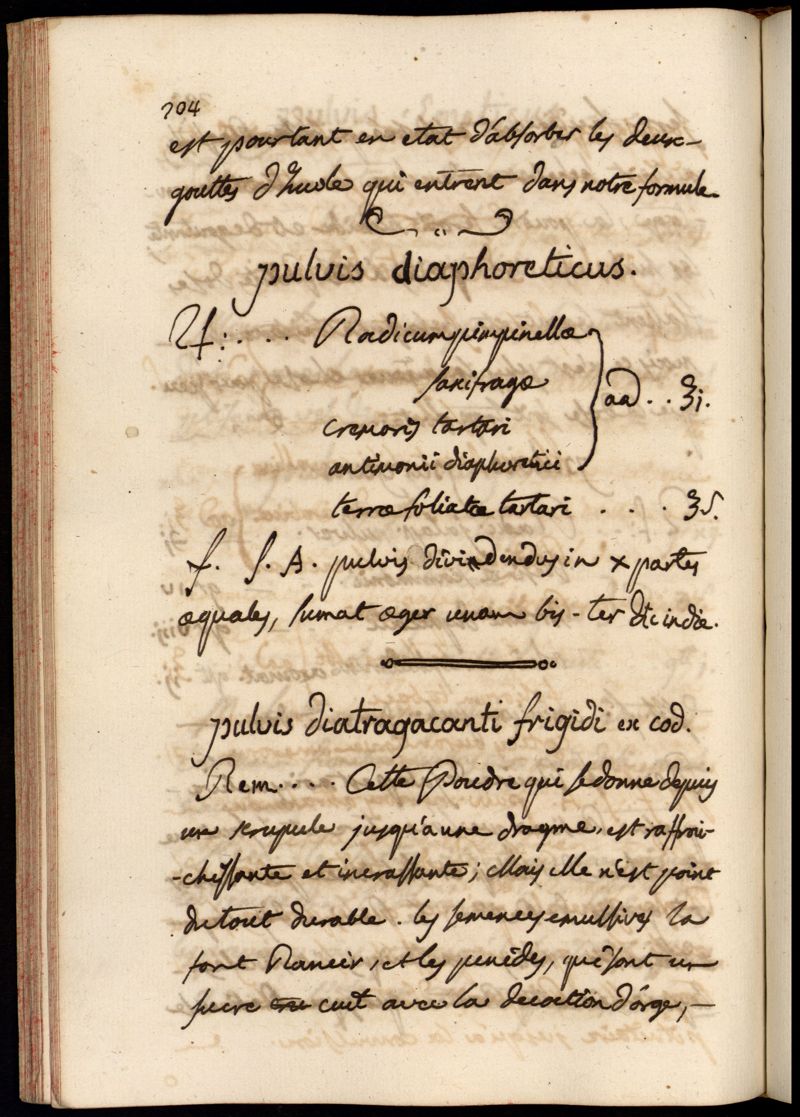 204
est pourtant en etat d'absorber les deux-
gouttes d'huile qui entrent dans notre formule.
pulvis diaphoreticus.
♃: . . . Radicum pimpinellæ
saxifragæ
cremoris tartari
antimonii diaphoretici
aa . . ʒj.
terræ foliatæ tartari . . . ʒs.
f. S. A. pulvis dividendus in x partes
æquales, sumat æger unam bis-ter dic in die.
pulvis diatragacanti frigidi ex cod.
Rem. . . . Cette Poudre qui se donne depuis
un scrupule jusqu'a une dragme, est raffroi-
-chissante et incrassante; Mais elle n'est point
du tout durable. les semences emulsives la
font Rancir, et les penides, qui sont un
sucre cuit avec la decoction d'orge, -